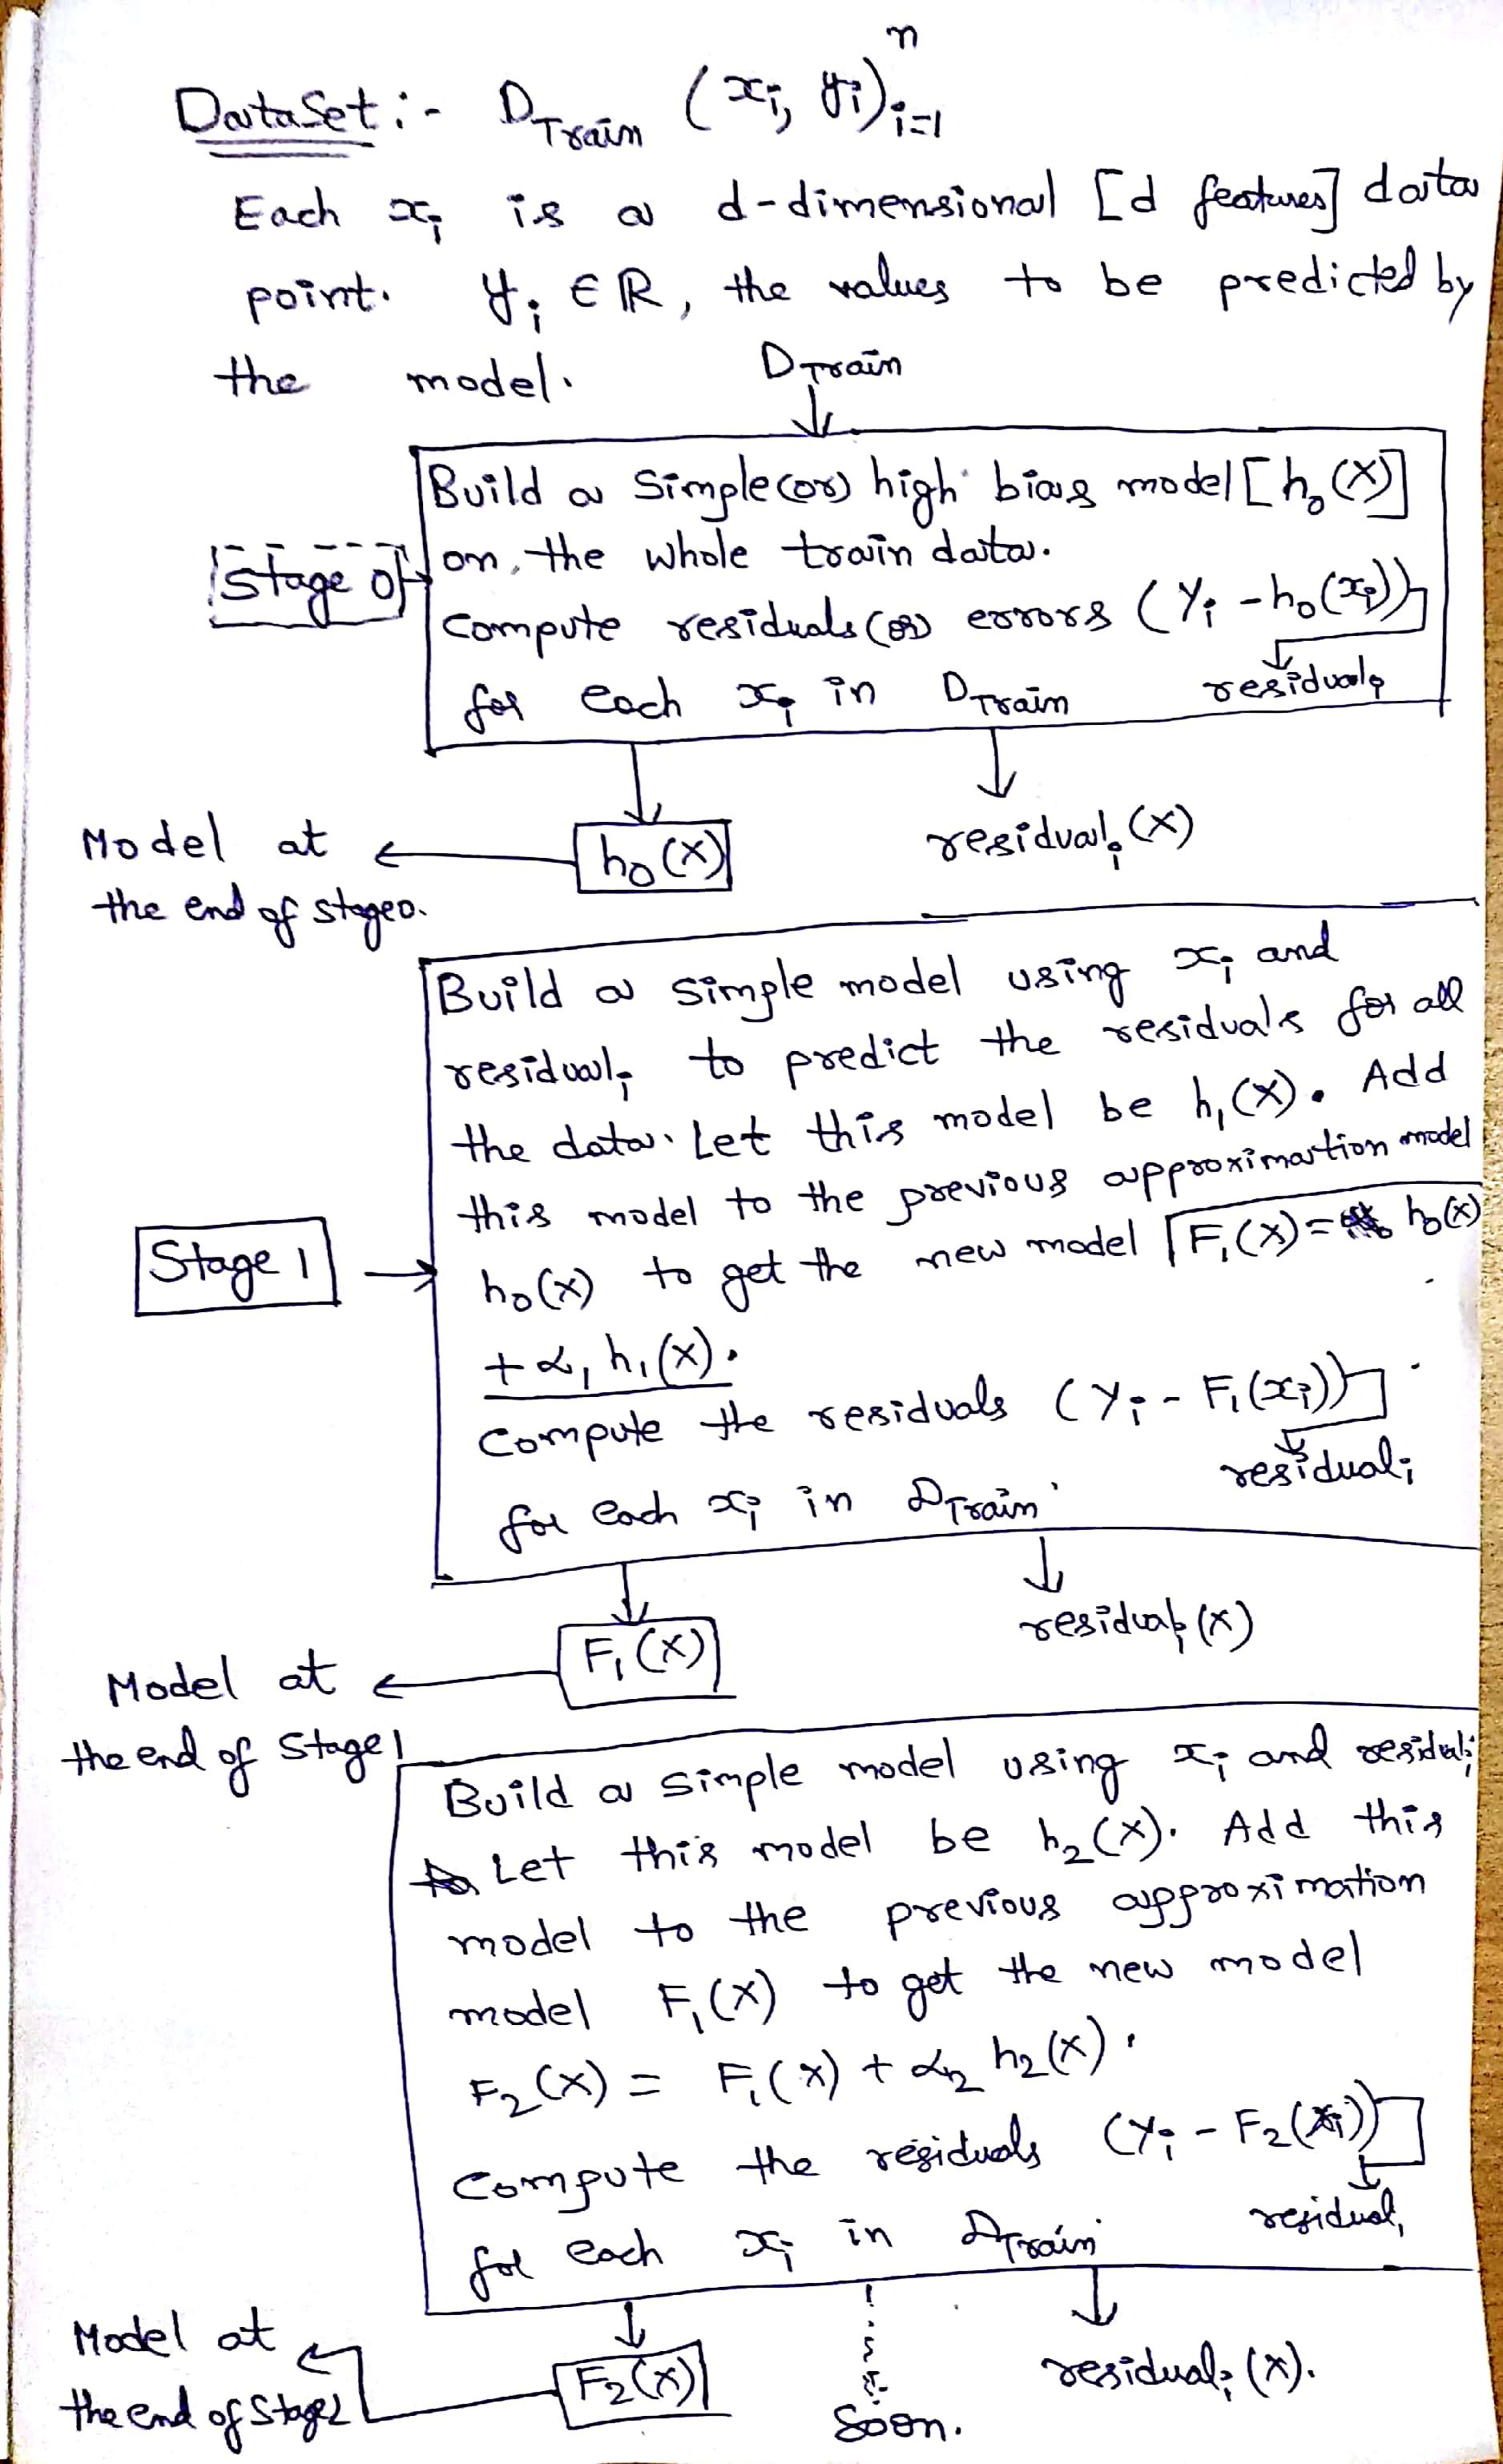 DataSet :- D_Train (x_i, y_i)^n_i=1
Each x_i is a d-dimensional [d features] data
point. y_i ∈ ℝ, the values to be predicted by
the model.
D_Train
Stage 0
Build a simple (or) high bias model [h_0(X)]
on the whole train data.
compute residuals (or) errors (y_i - h_0(x_i))
residual_i
for each x_i in D_Train
h_0(X)
residual_i (X)
Model at
the end of stage 0.
Stage 1
Build a simple model using x_i and
residual_i to predict the residuals for all
the data. Let this model be h_1(X). Add
this model to the previous approximation model
h_0(X) to get the new model F_1(X) = h_0(X)
+ α_1 h_1(X).
Compute the residuals (y_i - F_1(x_i))
residual_i
for each x_i in D_Train
F_1(X)
residual_i (X)
Model at
the end of Stage 1
Build a simple model using x_i and residual_i
Let this model be h_2(X). Add this
model to the previous approximation
model F_1(X) to get the new model
F_2(X) = F_1(X) + α_2 h_2(X).
Compute the residuals (y_i - F_2(x_i))
residual_i
for each x_i in D_Train
F_2(X)
residual_i (X).
Model at
the end of Stage 2
Soon.